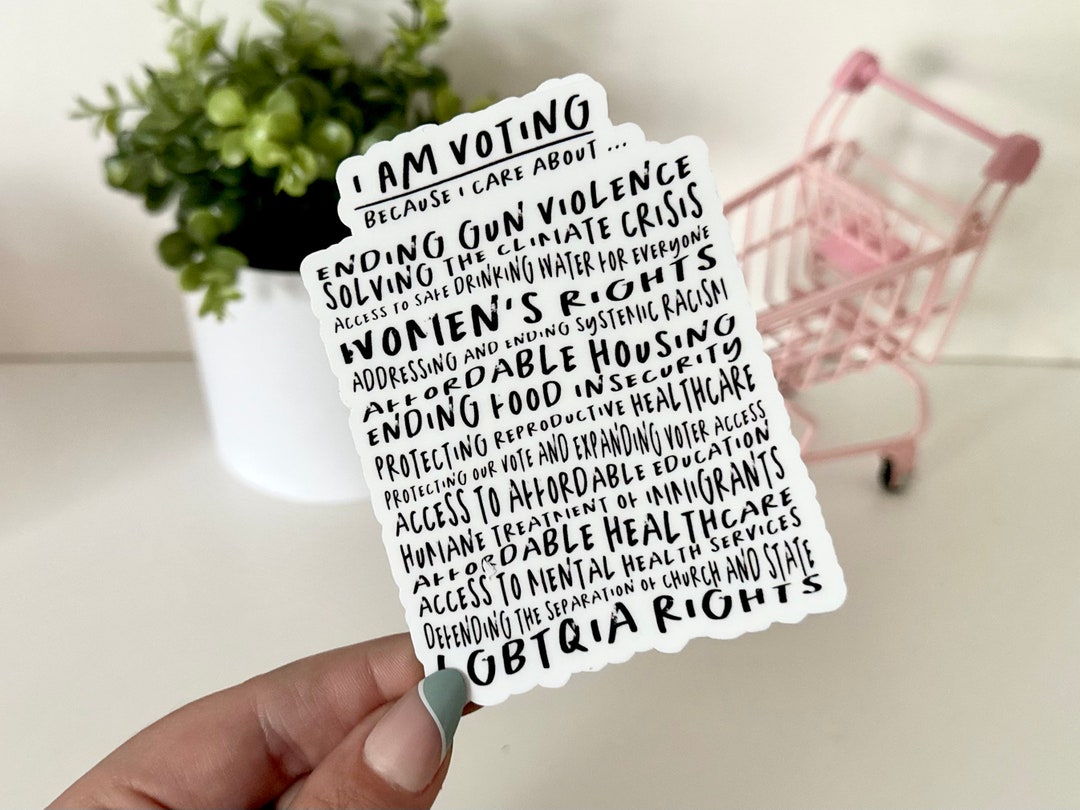 I AM VOTING
BECAUSE I CARE ABOUT ...
ENDING GUN VIOLENCE
SOLVING THE CLIMATE CRISIS
ACCESS TO SAFE DRINKING WATER FOR EVERYONE
WOMEN'S RIGHTS
ADDRESSING AND ENDING SYSTEMIC RACISM
AFFORDABLE HOUSING
ENDING FOOD INSECURITY
PROTECTING REPRODUCTIVE HEALTHCARE
PROTECTING OUR VOTE AND EXPANDING VOTER ACCESS
ACCESS TO AFFORDABLE EDUCATION
HUMANE TREATMENT OF IMMIGRANTS
AFFORDABLE HEALTHCARE
ACCESS TO MENTAL HEALTH SERVICES
DEFENDING THE SEPARATION OF CHURCH AND STATE
LGBTQIA RIGHTS